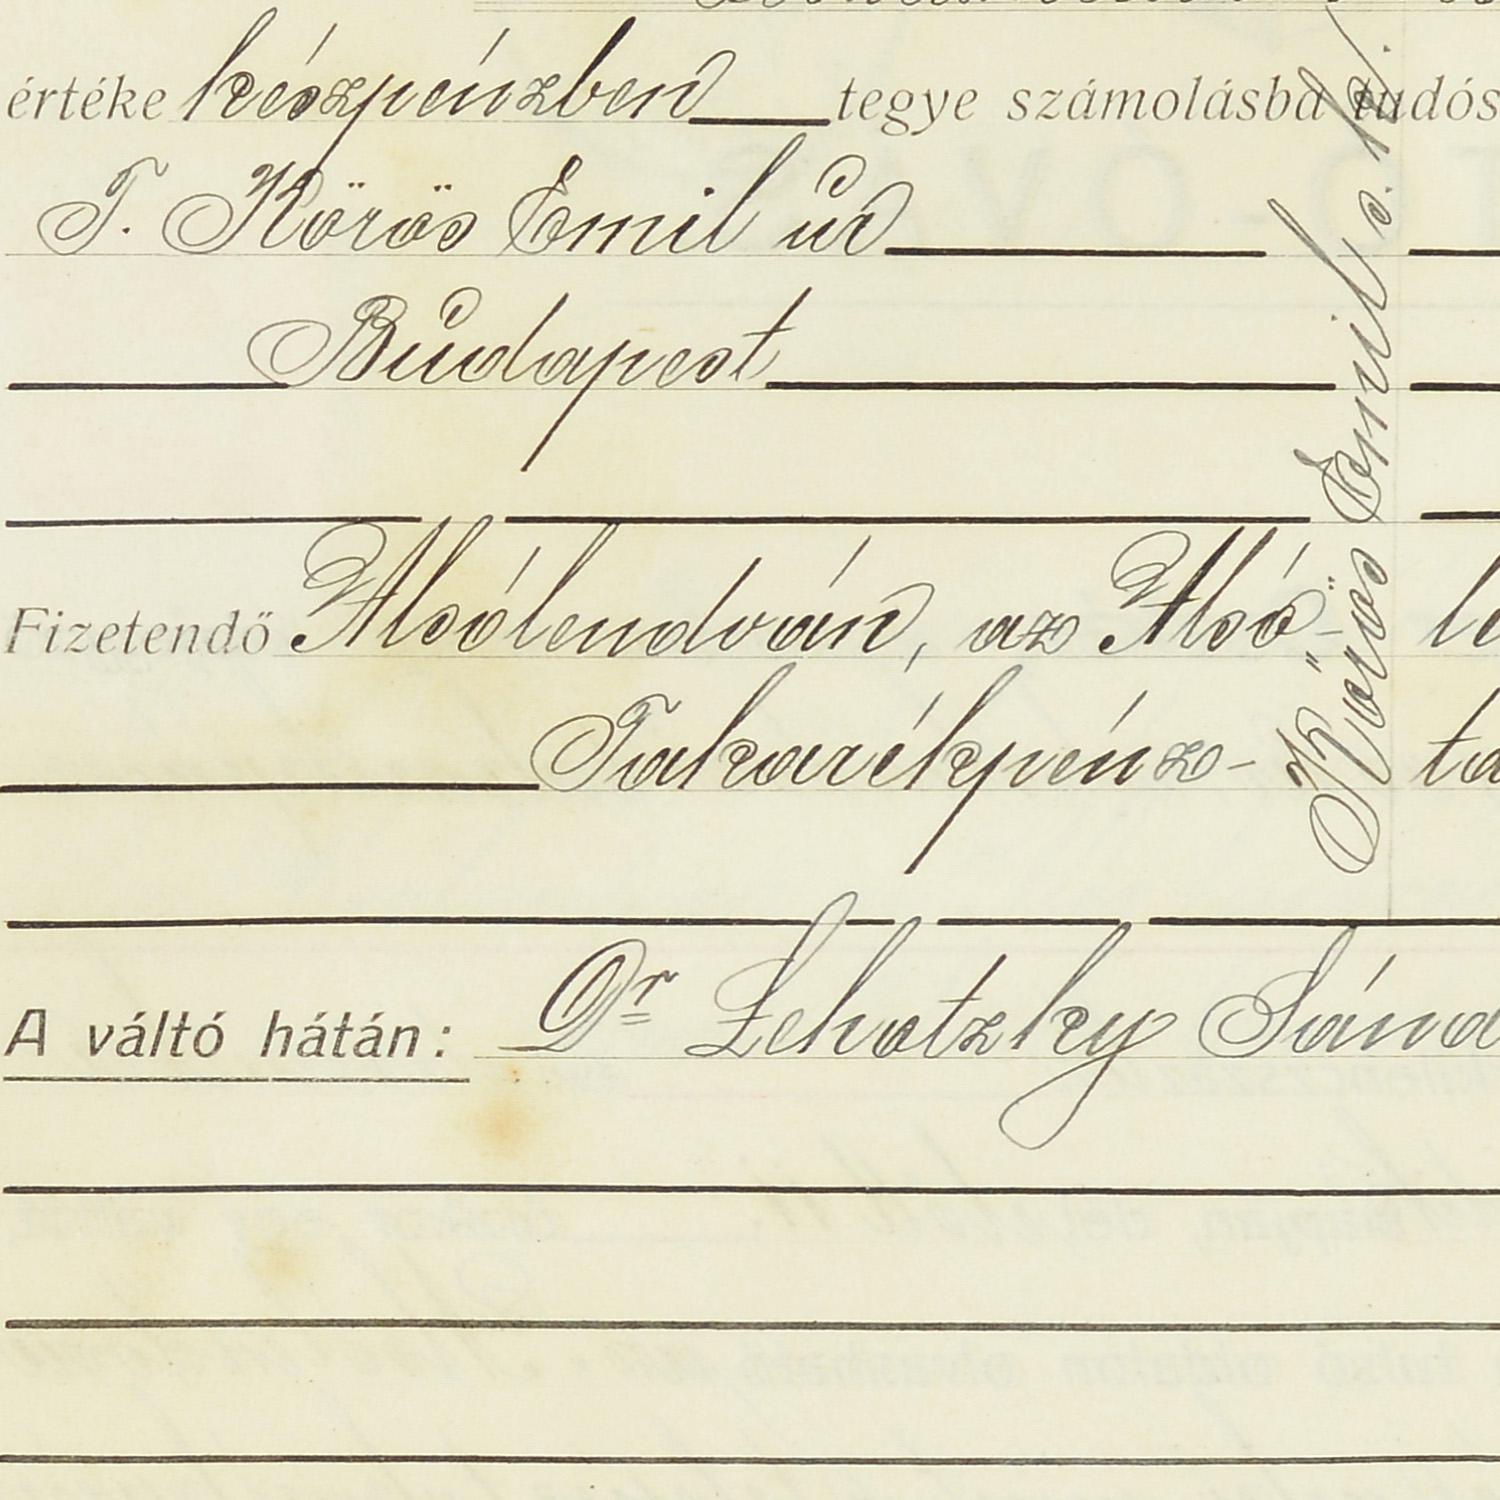 értéke készpénzben tegye számolásba tudós
T. Körös Emil úr
Budapest
Fizetendő Alsólendván, az Alsó- le
Takarékpénz- ta
A váltó hátán: Dr Lehotzky Sánd
Körös Emil s. k.